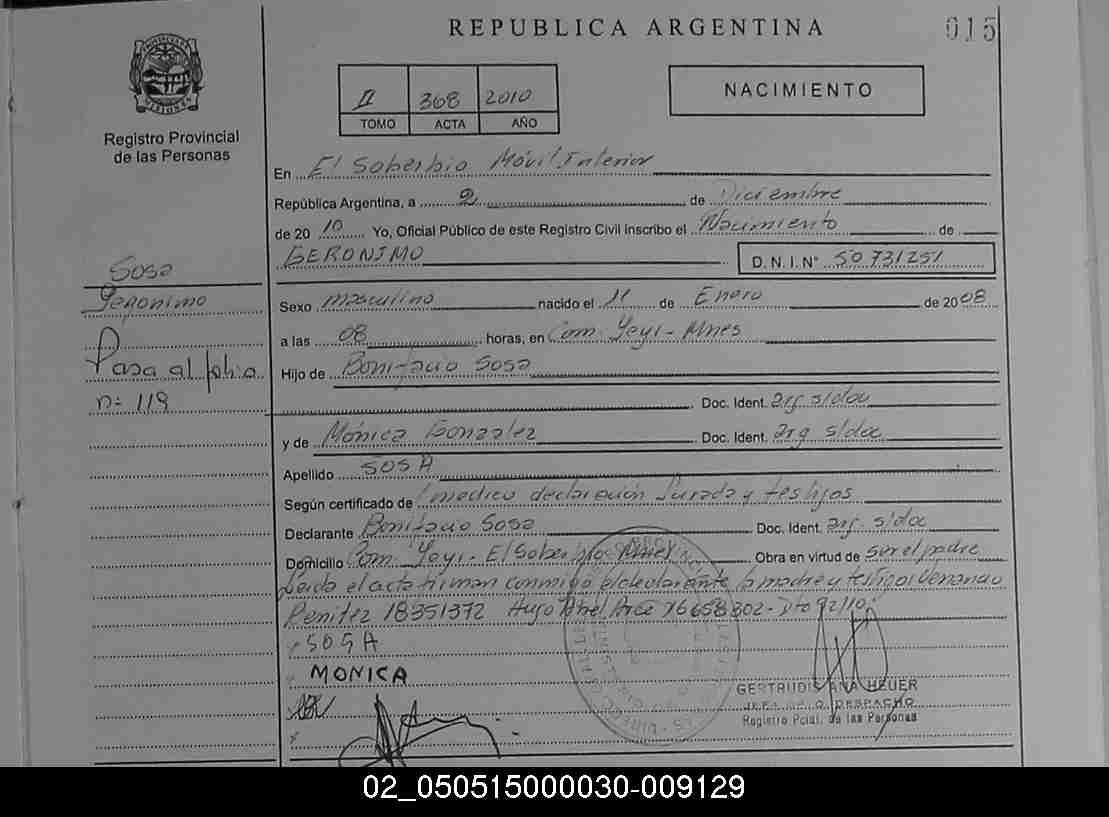 REPUBLICA ARGENTINA
015
PROVINCIA DE MISIONES
Registro Provincial
de las Personas
II 368 2010
TOMO ACTA AÑO
NACIMIENTO
En El Soberbio Móvil Interior
República Argentina, a 2 de Diciembre
de 2010 Yo, Oficial Público de este Registro Civil inscribo el Nacimiento de
GERONIMO
D.N.I.N° 50731251
Sosa
Geronimo
Pasa al folio
n: 119
Sexo masculino nacido el 11 de Enero de 2008
a las 08 horas, en Com. Yeyi - Mnes
Hijo de Bonifacio Sosa
Doc. Ident. arg s/doc
y de Mónica Gonzalez Doc. Ident. arg s/doc
Apellido SOSA
Según certificado de médico declaración Jurada y testigos
Declarante Bonifacio Sosa Doc. Ident. arg. s/doc
Domicilio Com. Yeyi - El Soberbio Mnes Obra en virtud de ser el padre
Leida el acta firman conmigo el declarante la madre y testigos Venancio
Benitez 18351372 Hugo Arce 16658302 - Dto 92/10.
SOSA
MONICA
GERTRUDIS ANA HEUER
JEFA DESPACHO
Registro Pcial. de las Personas
02_050515000030-009129